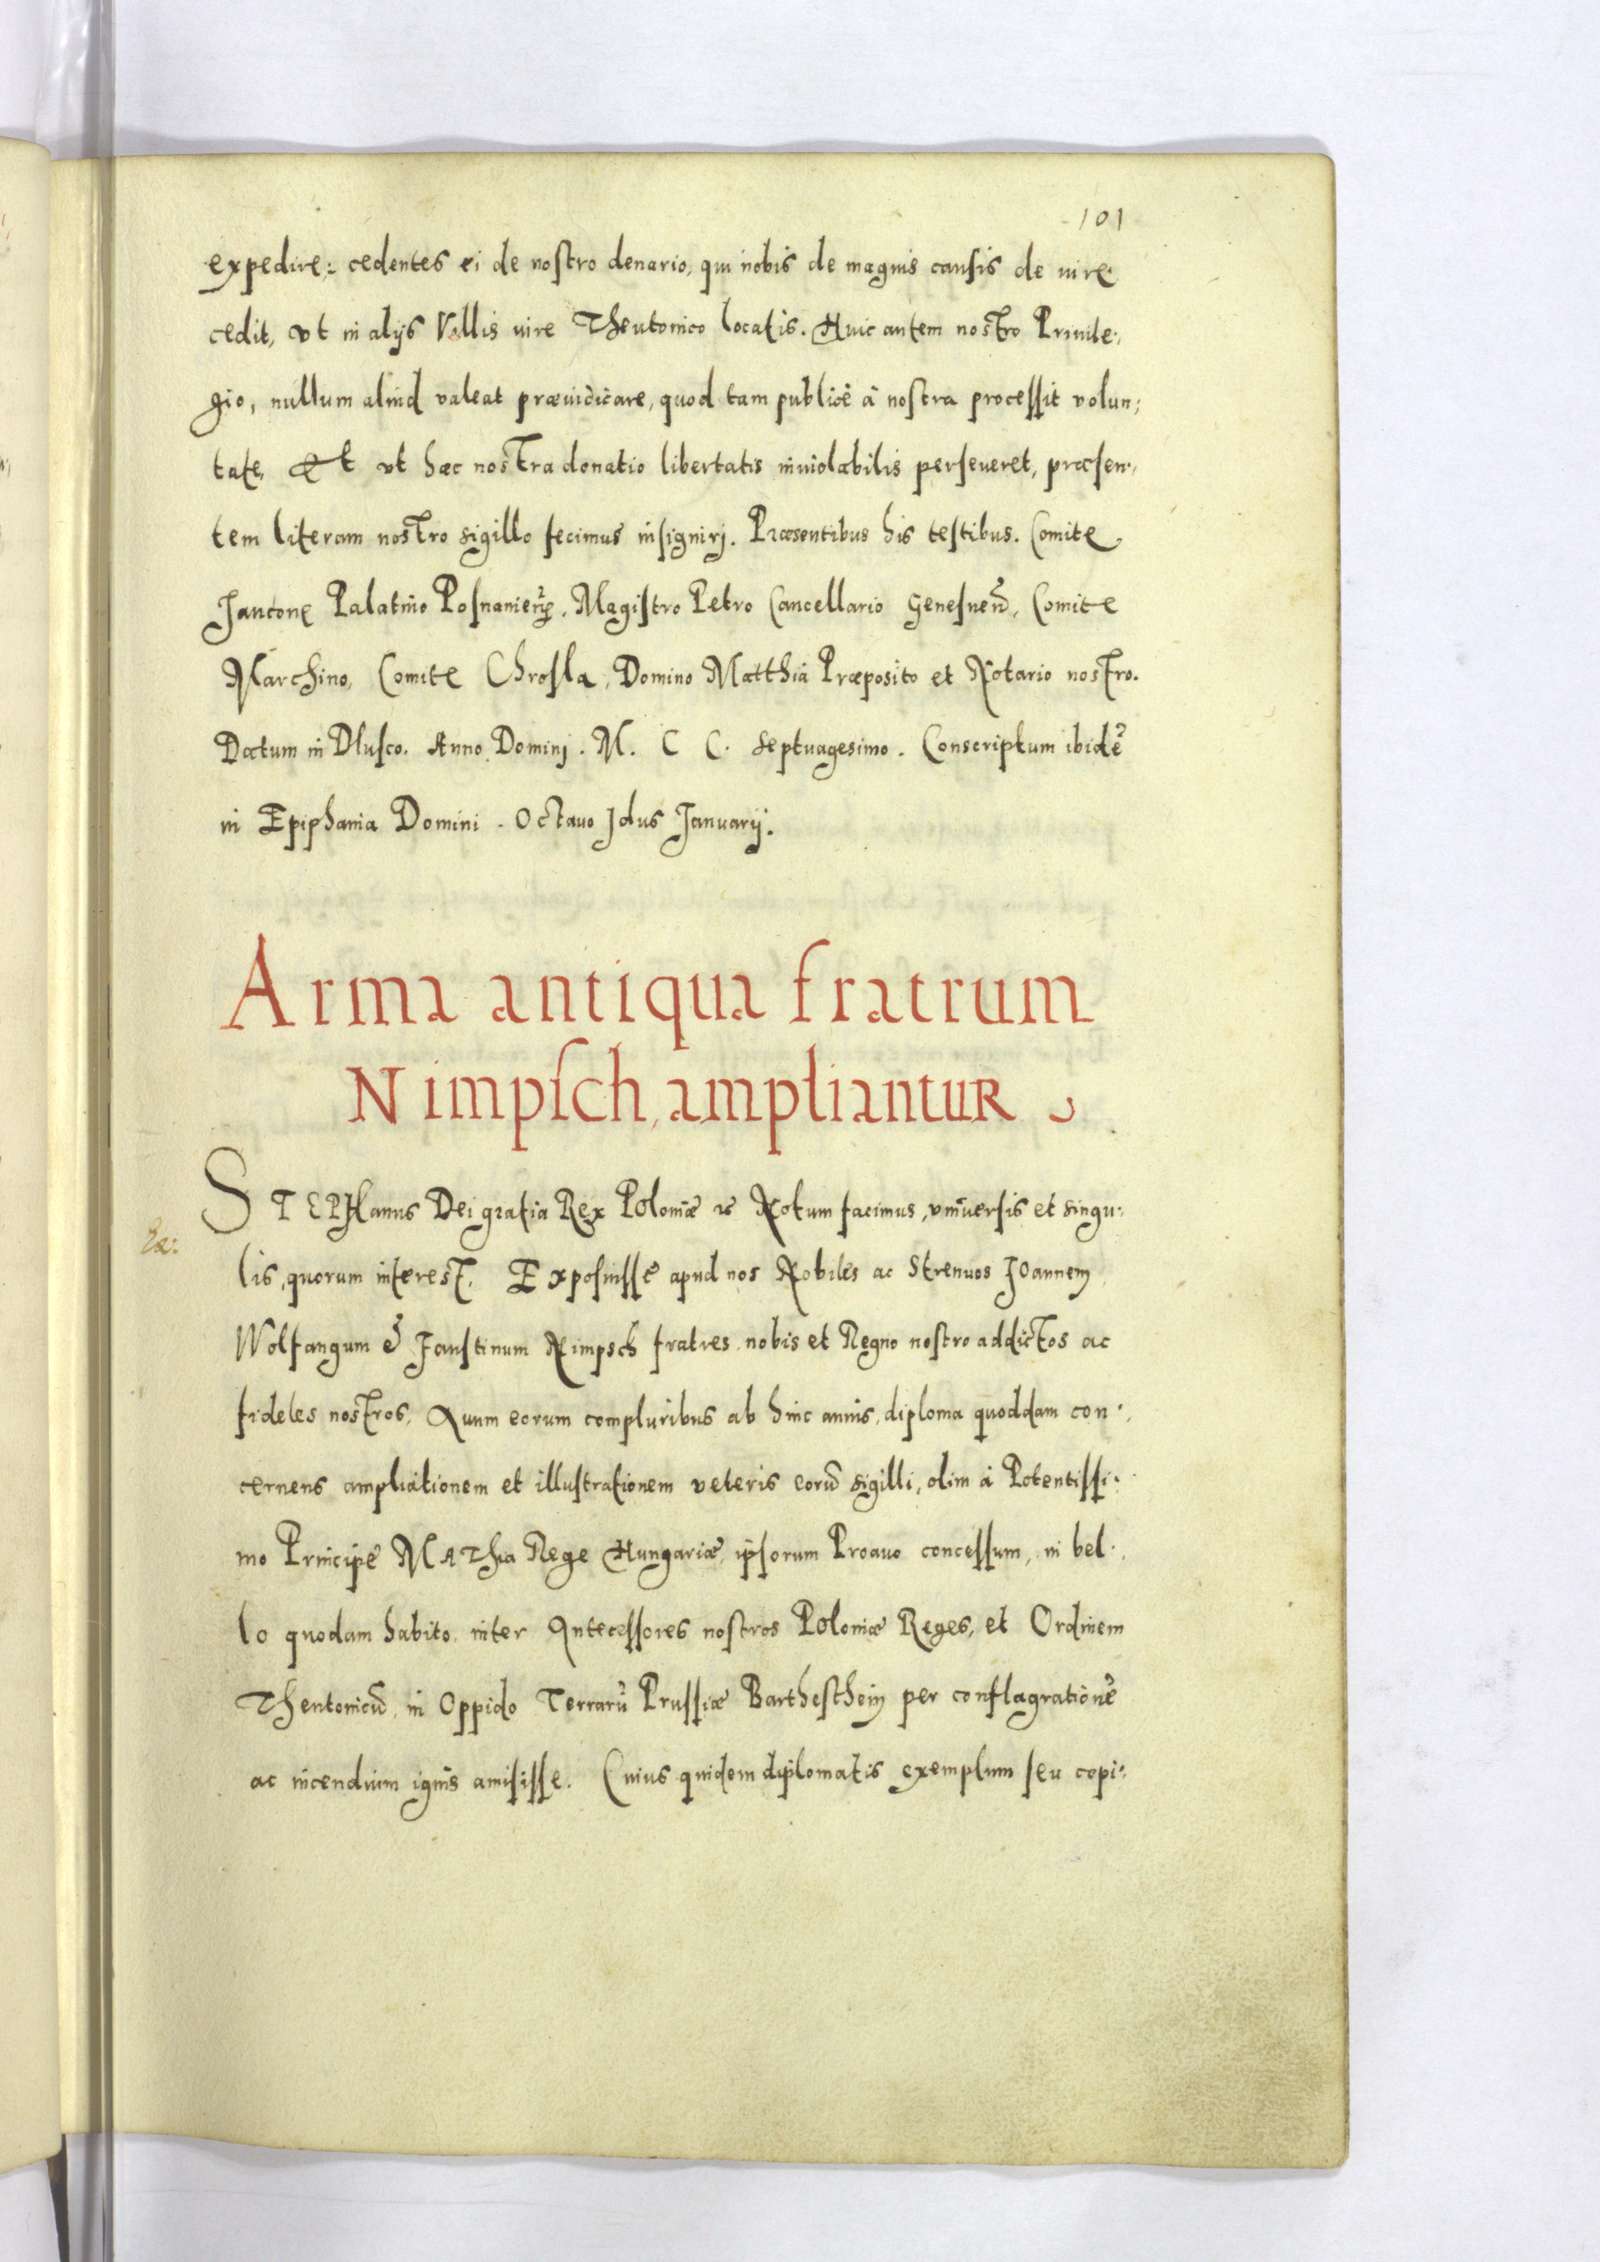 101
expedire: cedentes ei de nostro denario, qui nobis de magnis causis de iure
cedit, vt in alijs Vıllis iure Theutonico locatis. Huic autem nostro Priuile:
gio, nullum aliud valeat præiudicare, quod tam publicè à nostra processit volun:
tate, Et vt hæc nostra donatio libertatis inuiolabilis perseueret, præsen:
tem literam nostro sigillo fecimus insignirj. Præsentibus his testibus. Comite
Jancone Palatino Posnanien, Magistro Petro Cancellario Genesneñ, Comite
Marchino, Comite Chrosla, Domino Matthia Præposito et Notario nostro.
Datum in Dlusco. Anno Dominj. M. C C. Septuagesimo. Conscriptum ibidē
in Epiphania Domini. Octauo Jdus Januarij.
Arma antiqua fratrum
Nimpsch, ampliantur
STEPHanus Dei gratia Rex Poloniæ Notum facimus, vniuersis et singu:
lis, quorum interest. Exposuisse apud nos Nobiles ac Strenuos Joannem
Wolfangum & Faustinum Nimpsch fratres nobis et Regno nostro addictos ac
fideles nostros, Quum eorum compluribus ab hinc annis, diploma quoddam con:
cernens ampliationem et illustrationem veteris eorū sigilli, olim à Potentissi:
mo Principe MAThia Rege Hungariæ, ipsorum Proauo concessum, in bel:
lo quodam habito inter Antecessores nostros Poloniæ Reges, et Ordinem
Theutonicū, in Oppido Terrarū Prussiæ Barthesthein per conflagrationē
ac incendium ignis amisisse. Cuius quidem diplomatis exemplum seu copi: